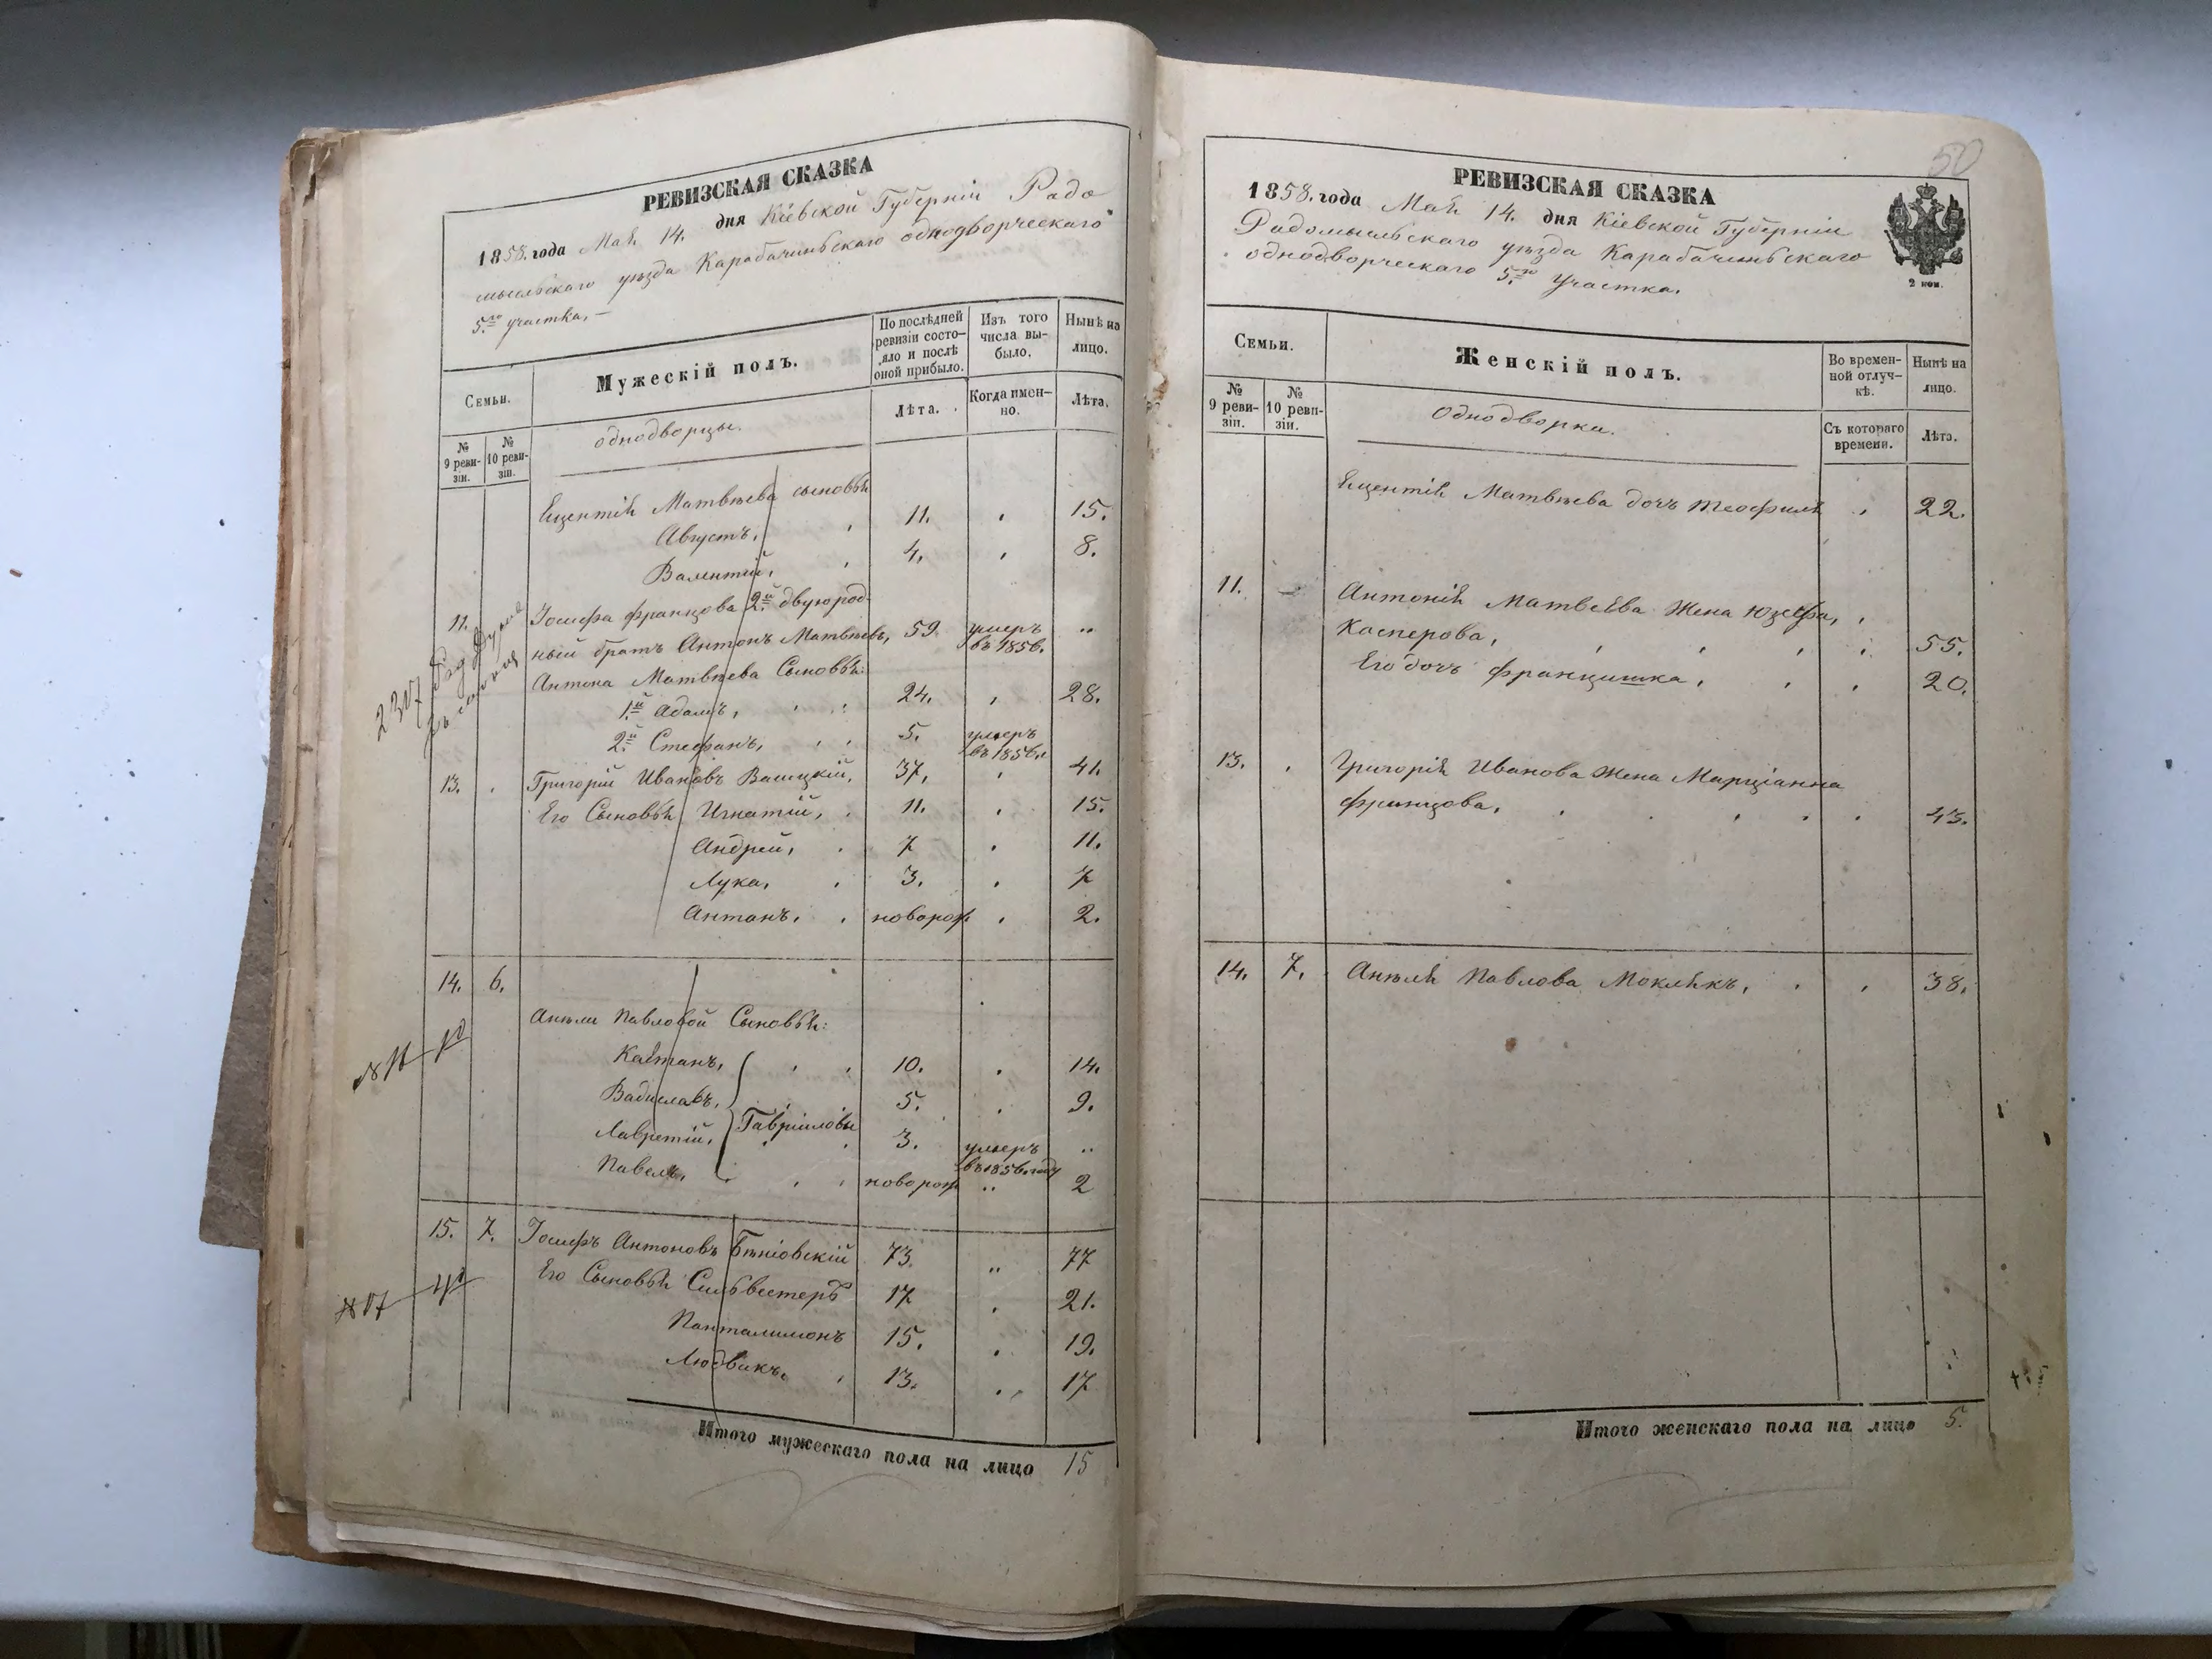 РЕВИЗСКАЯ СКАЗКА
1858. года Мая 14. дня Кіевской Губерніи Радо
мысльскаго уѣзда Карабачинскаго однодворческаго
5.го участка, —
Семьи.
Мужескій полъ.
По послѣдней ревизіи состояло и послѣ оной прибыло.
Изъ того числа выбыло.
Нынѣ на лицо.
№ 9 ревизіи.
№ 10 ревизіи.
однодворцы.
Лѣта.
Когда именно.
Лѣта.
Вицентія Матвѣева сыновья
Августъ, 11. 15.
Валентій, 4. 8.
11. Іосифа Францова 2й двуюрод-
ный братъ Антонъ Матвѣевъ, 59. умеръ въ 1856. "
Антона Матвѣева Сыновья:
1й Адамъ, 24. 28.
2й Стефанъ, 5. умеръ въ 1856.
13. Григорій Ивановъ 37. 41.
Его Сыновья Игнатій, 11. 15.
Андрей, 7 11.
Лука, 3. 7
Антонъ, новорож. 2.
14. 6.
Анѣли Павловой Сыновья:
Каэтанъ, 10. 14.
Вадиславъ, 5. 9.
Лаврентій, Гавріиловы 3. умеръ въ 1856 году "
Павелъ, новорож. " 2
15. 7. Іосифъ Антоновъ Бѣніовскій 73. " 77
Его Сыновья Сильвестеръ 17 21.
Панталимонъ 15. 19.
Людвикъ, 13. 17
Итого мужескаго пола на лицо 15
50
РЕВИЗСКАЯ СКАЗКА
1858. года Мая 14. дня Кіевской Губерніи
Радомысльскаго уѣзда Карабачинскаго
однодворческаго 5.го участка.
2 коп.
Семьи.
Женскій полъ.
Во временной отлучкѣ.
Нынѣ на лицо.
№ 9 ревизіи.
№ 10 ревизіи.
однодворки.
Съ котораго времени.
Лѣта.
Вицентія Матвѣева дочь Теофиля 22.
11. Антонія Матвеева Жена Юзефа,
Касперова, 55.
Его дочь Францишка, 20.
13. Григорія Иванова Жена Марціанна
Францова, 43.
14. 7. Анѣля Павлова Моклякъ, 38.
Итого женскаго пола на лицо 5.